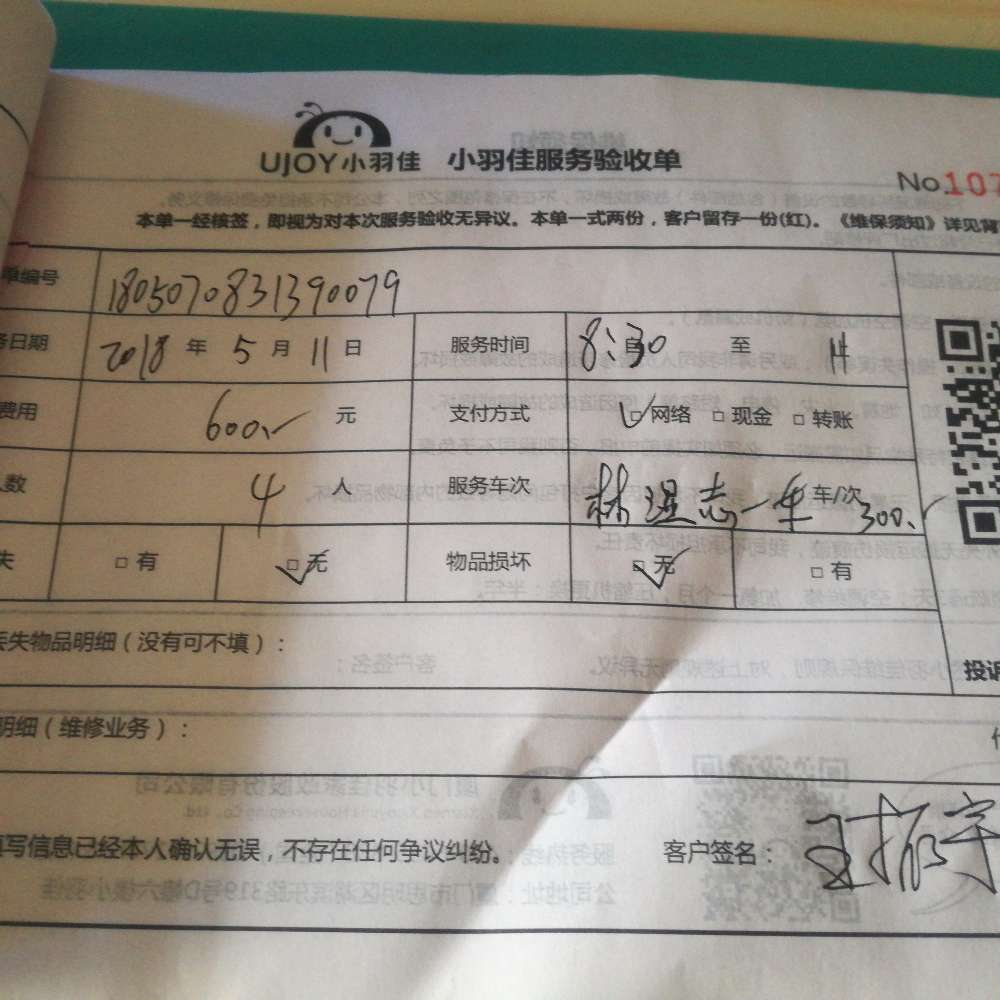 UJOY小羽佳 小羽佳服务验收单
No.107
本单一经核签，即视为对本次服务验收无异议。本单一式两份，客户留存一份(红)。《维保须知》详见背
单编号 1805070831390079
务日期 2018 年 5 月 11 日 服务时间 8:30 至 11
费用 600.- 元 支付方式 ☑网络 □现金 □转账
人数 4 人 服务车次 林 志一车 车/次 300.-
失 □有 ☑无 物品损坏 ☑无 □有
丢失物品明细（没有可不填）：
投诉
明细（维修业务）：
填写信息已经本人确认无误，不存在任何争议纠纷。 客户签名：王振宇